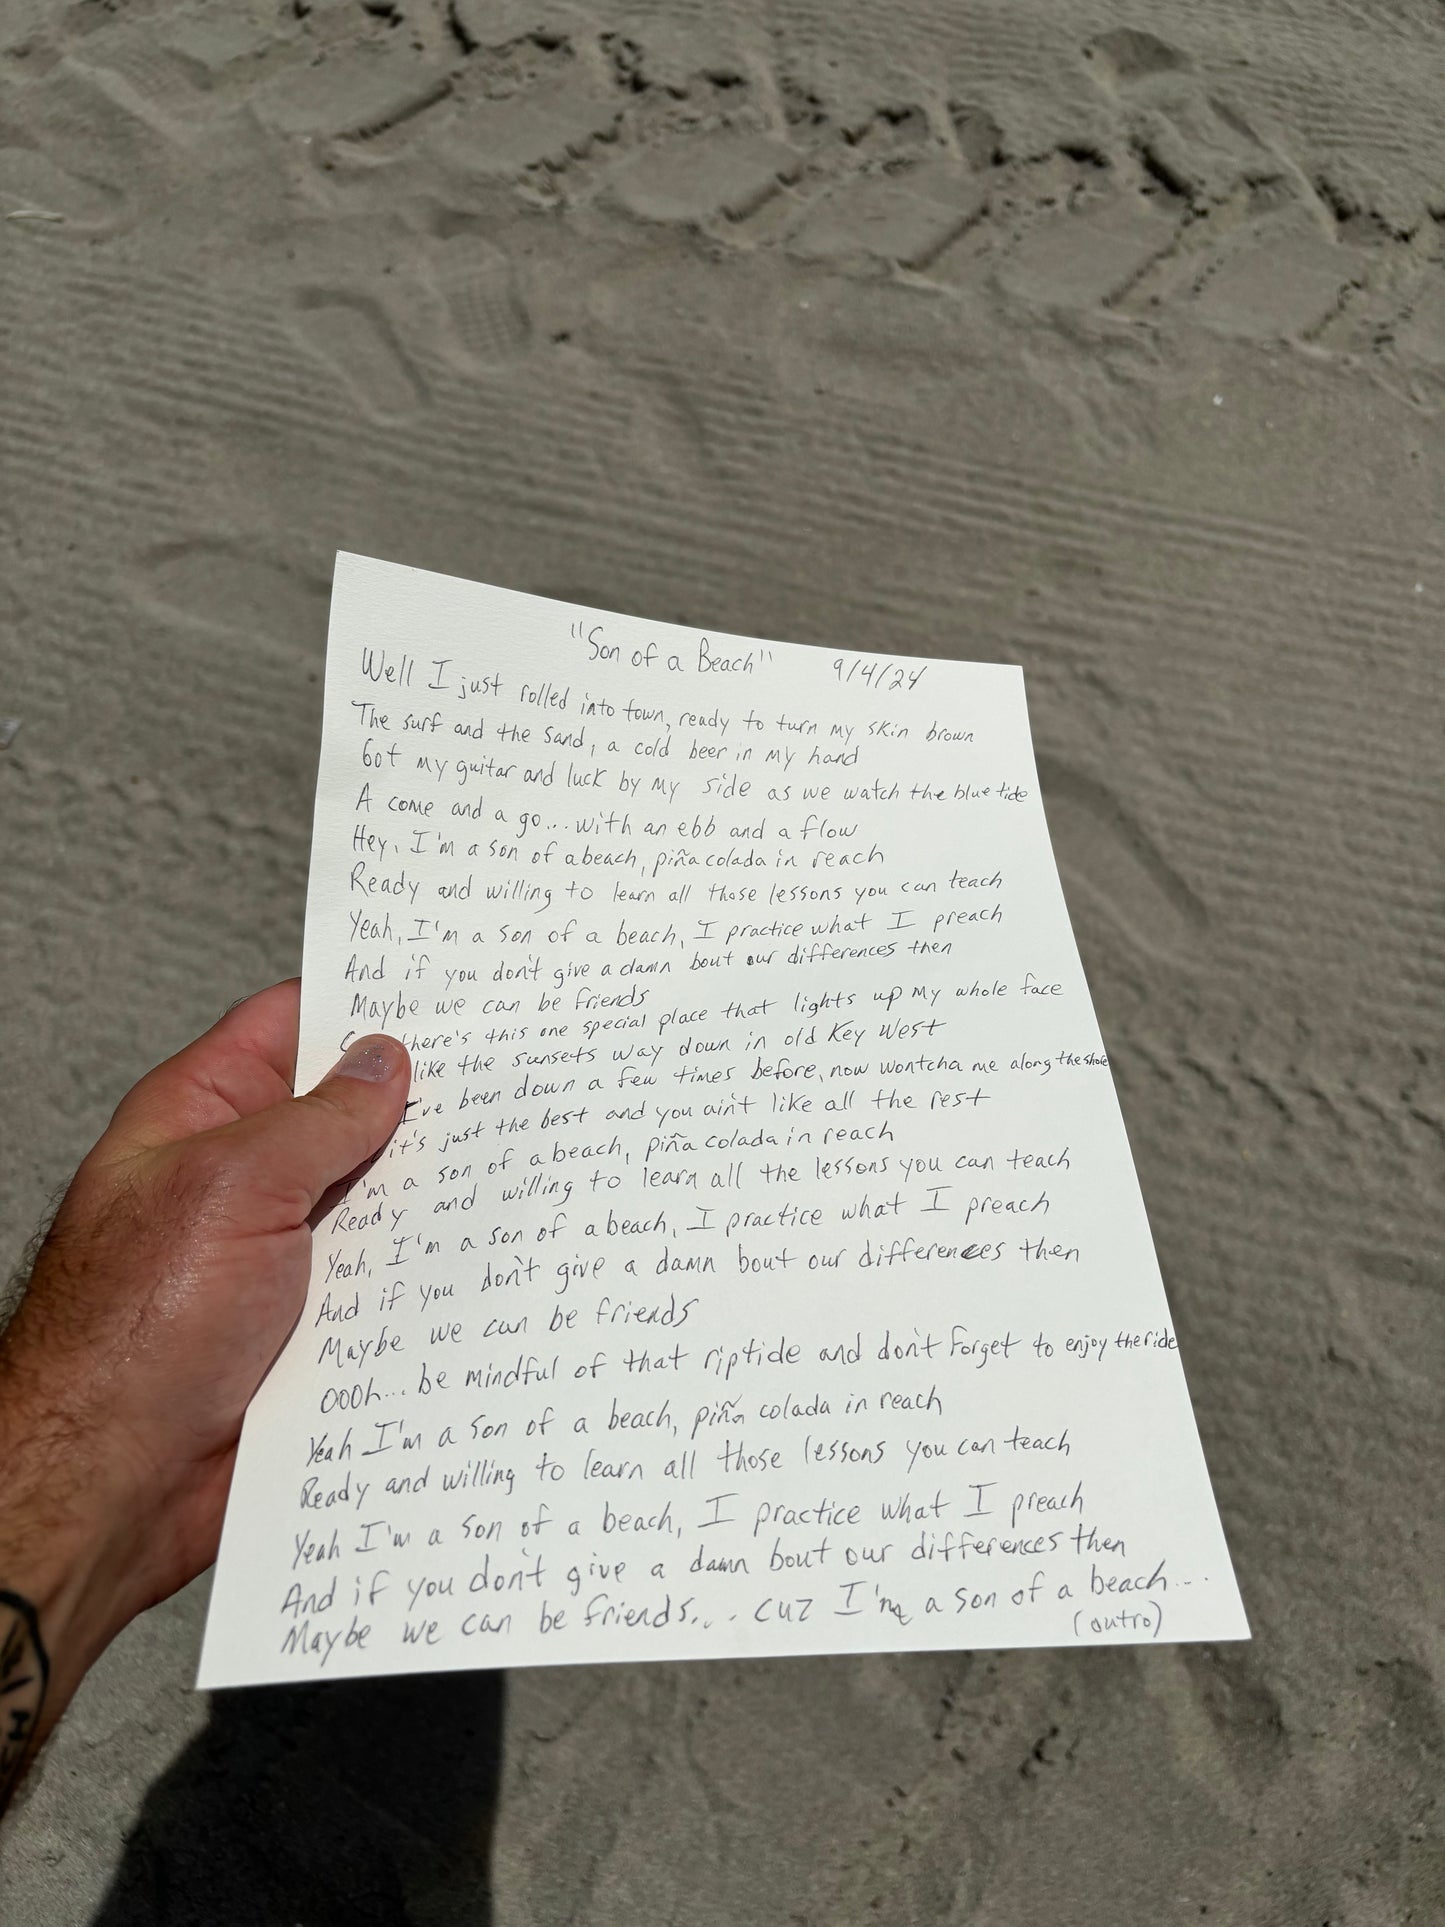 "Son of a Beach" 9/4/24
Well I just rolled into town, ready to turn my skin brown
The surf and the sand, a cold beer in my hand
Got my guitar and luck by my side as we watch the blue tide
A come and a go... with an ebb and a flow
Hey, I'm a son of a beach, piña colada in reach
Ready and willing to learn all those lessons you can teach
Yeah, I'm a son of a beach, I practice what I preach
And if you don't give a damn bout our differences then
Maybe we can be friends
there's this one special place that lights up my whole face
like the sunsets way down in old Key West
I've been down a few times before, now wontcha me along the shore
it's just the best and you ain't like all the rest
I'm a son of a beach, piña colada in reach
Ready and willing to learn all the lessons you can teach
Yeah, I'm a son of a beach, I practice what I preach
And if you don't give a damn bout our differences then
Maybe we can be friends
OOOh... be mindful of that riptide and don't forget to enjoy the ride
Yeah I'm a son of a beach, piña colada in reach
Ready and willing to learn all those lessons you can teach
Yeah I'm a son of a beach, I practice what I preach
And if you don't give a damn bout our differences then
Maybe we can be friends... cuz I'm a son of a beach...
(outro)